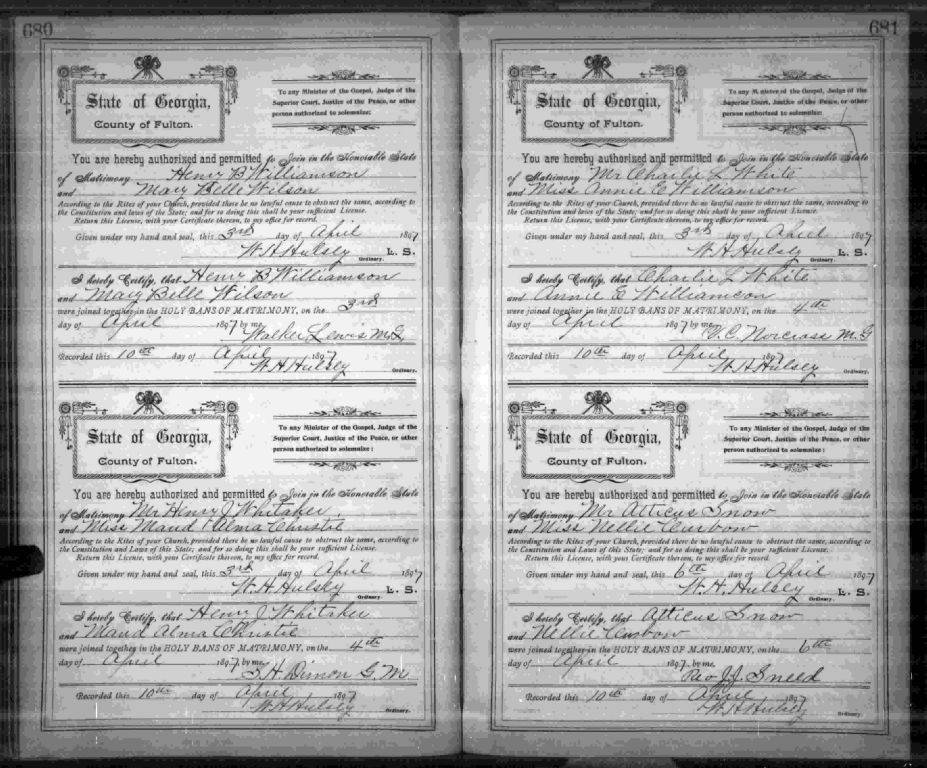 680
State of Georgia,
County of Fulton.
To any Minister of the Gospel, Judge of the
Superior Court, Justice of the Peace, or other
person authorized to solemnize:
You are hereby authorized and permitted to Join in the Honorable State
of Matrimony Henry B Williamson
and Mary Belle Wilson
According to the Rites of your Church, provided there be no lawful cause to obstruct the same, according to
the Constitution and laws of the State; and for so doing this shall be your sufficient License.
Return this License, with your Certificate thereon, to my office for record.
Given under my hand and seal, this 3rd day of April 1897
W.H. Hulsey L. S.
Ordinary.
I hereby Certify, that Henry B Williamson
and Mary Belle Wilson
were joined together in the HOLY BANS OF MATRIMONY, on the 3rd
day of April 1897 by me,
Walker Lewis M.G.
Recorded this 10th day of April 1897
W.H. Hulsey
Ordinary.
State of Georgia,
County of Fulton.
To any Minister of the Gospel, Judge of the
Superior Court, Justice of the Peace, or other
person authorized to solemnize:
You are hereby authorized and permitted to Join in the Honorable State
of Matrimony Mr Henry J Whitaker
and Miss Maud Alma Christie
According to the Rites of your Church, provided there be no lawful cause to obstruct the same, according to
the Constitution and Laws of this State; and for so doing this shall be your sufficient License.
Return this License, with your Certificate thereon, to my office for record.
Given under my hand and seal, this 3rd day of April 1897
W.H. Hulsey L. S.
Ordinary.
I hereby Certify, that Henry J Whitaker
and Maud Alma Christie
were joined together in the HOLY BANS OF MATRIMONY, on the 4th
day of April 1897, by me,
S.H. Dimon G.M.
Recorded this 10th day of April 1897
W.H. Hulsey
Ordinary.
681
State of Georgia,
County of Fulton.
To any Minister of the Gospel, Judge of the
Superior Court, Justice of the Peace, or other
person authorized to solemnize:
You are hereby authorized and permitted to Join in the Honorable State
of Matrimony Mr Charlie L White
and Miss Annie E Williamson
According to the Rites of your Church, provided there be no lawful cause to obstruct the same, according to
the Constitution and laws of the State; and for so doing this shall be your sufficient License.
Return this License, with your Certificate thereon, to my office for record.
Given under my hand and seal, this 3rd day of April 1897
W.H. Hulsey L. S.
Ordinary.
I hereby Certify, that Charlie L White
and Annie E Williamson
were joined together in the HOLY BANS OF MATRIMONY, on the 4th
day of April 1897 by me,
V.C. Norcross M.G
Recorded this 10th day of April 1897
W.H. Hulsey
Ordinary.
State of Georgia,
County of Fulton.
To any Minister of the Gospel, Judge of the
Superior Court, Justice of the Peace, or other
person authorized to solemnize:
You are hereby authorized and permitted to Join in the Honorable State
of Matrimony Mr Atticus Snow
and Miss Nellie Cusbow
According to the Rites of your Church, provided there be no lawful cause to obstruct the same, according to
the Constitution and Laws of this State; and for so doing this shall be your sufficient License.
Return this License, with your Certificate thereon, to my office for record.
Given under my hand and seal, this 6th day of April 1897
W.H. Hulsey L. S.
Ordinary.
I hereby Certify, that Atticus Snow
and Nellie Cusbow
were joined together in the HOLY BANS OF MATRIMONY, on the 6th
day of April 1897, by me,
Rev J.J. Sneed
Recorded this 10th day of April 1897
W.H. Hulsey
Ordinary.